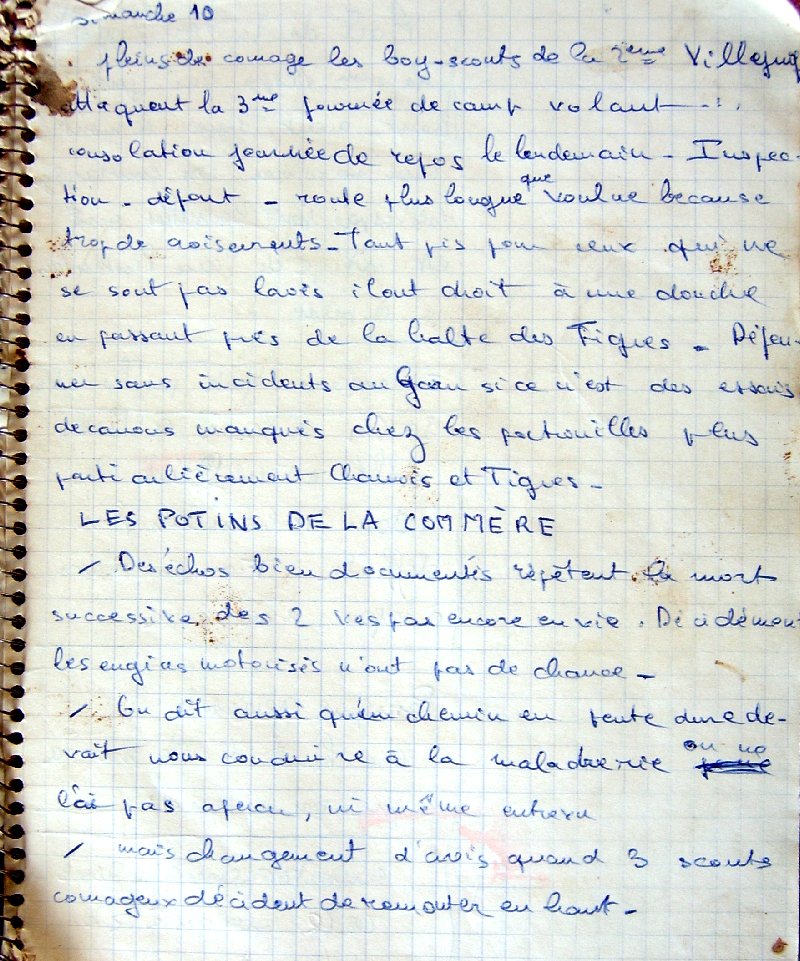 dimanche 10
pleins de courage les boy-scouts de la 2ème Villejuif
attaquent la 3me journée de camp volant ...
consolation journée de repos le lendemain - Inspec-
tion - départ - route plus longue que voulue because
trop de croisements - Tant pis pour ceux qui ne
se sont pas lavés ils ont droit à une douche
en passant près de la halte des Tigres - Déjeu-
ner sans incidents au si ce n'est des essais
de canous manqués chez les patrouilles plus
particulièrement Chamois et Tigres -
LES POTINS DE LA COMMÈRE
/ Des échos bien documentés répètent la mort
successive des 2 vespas encore en vie. Décidément
les engins motorisés n'ont pas de chance -
/ On dit aussi qu'un chemin en pente dure de-
vait nous conduire à la maladrerie on ne
l'ai pas aperçu, ni même entrevu
/ mais changement d'avis quand 3 scouts
courageux décident de remonter en haut -